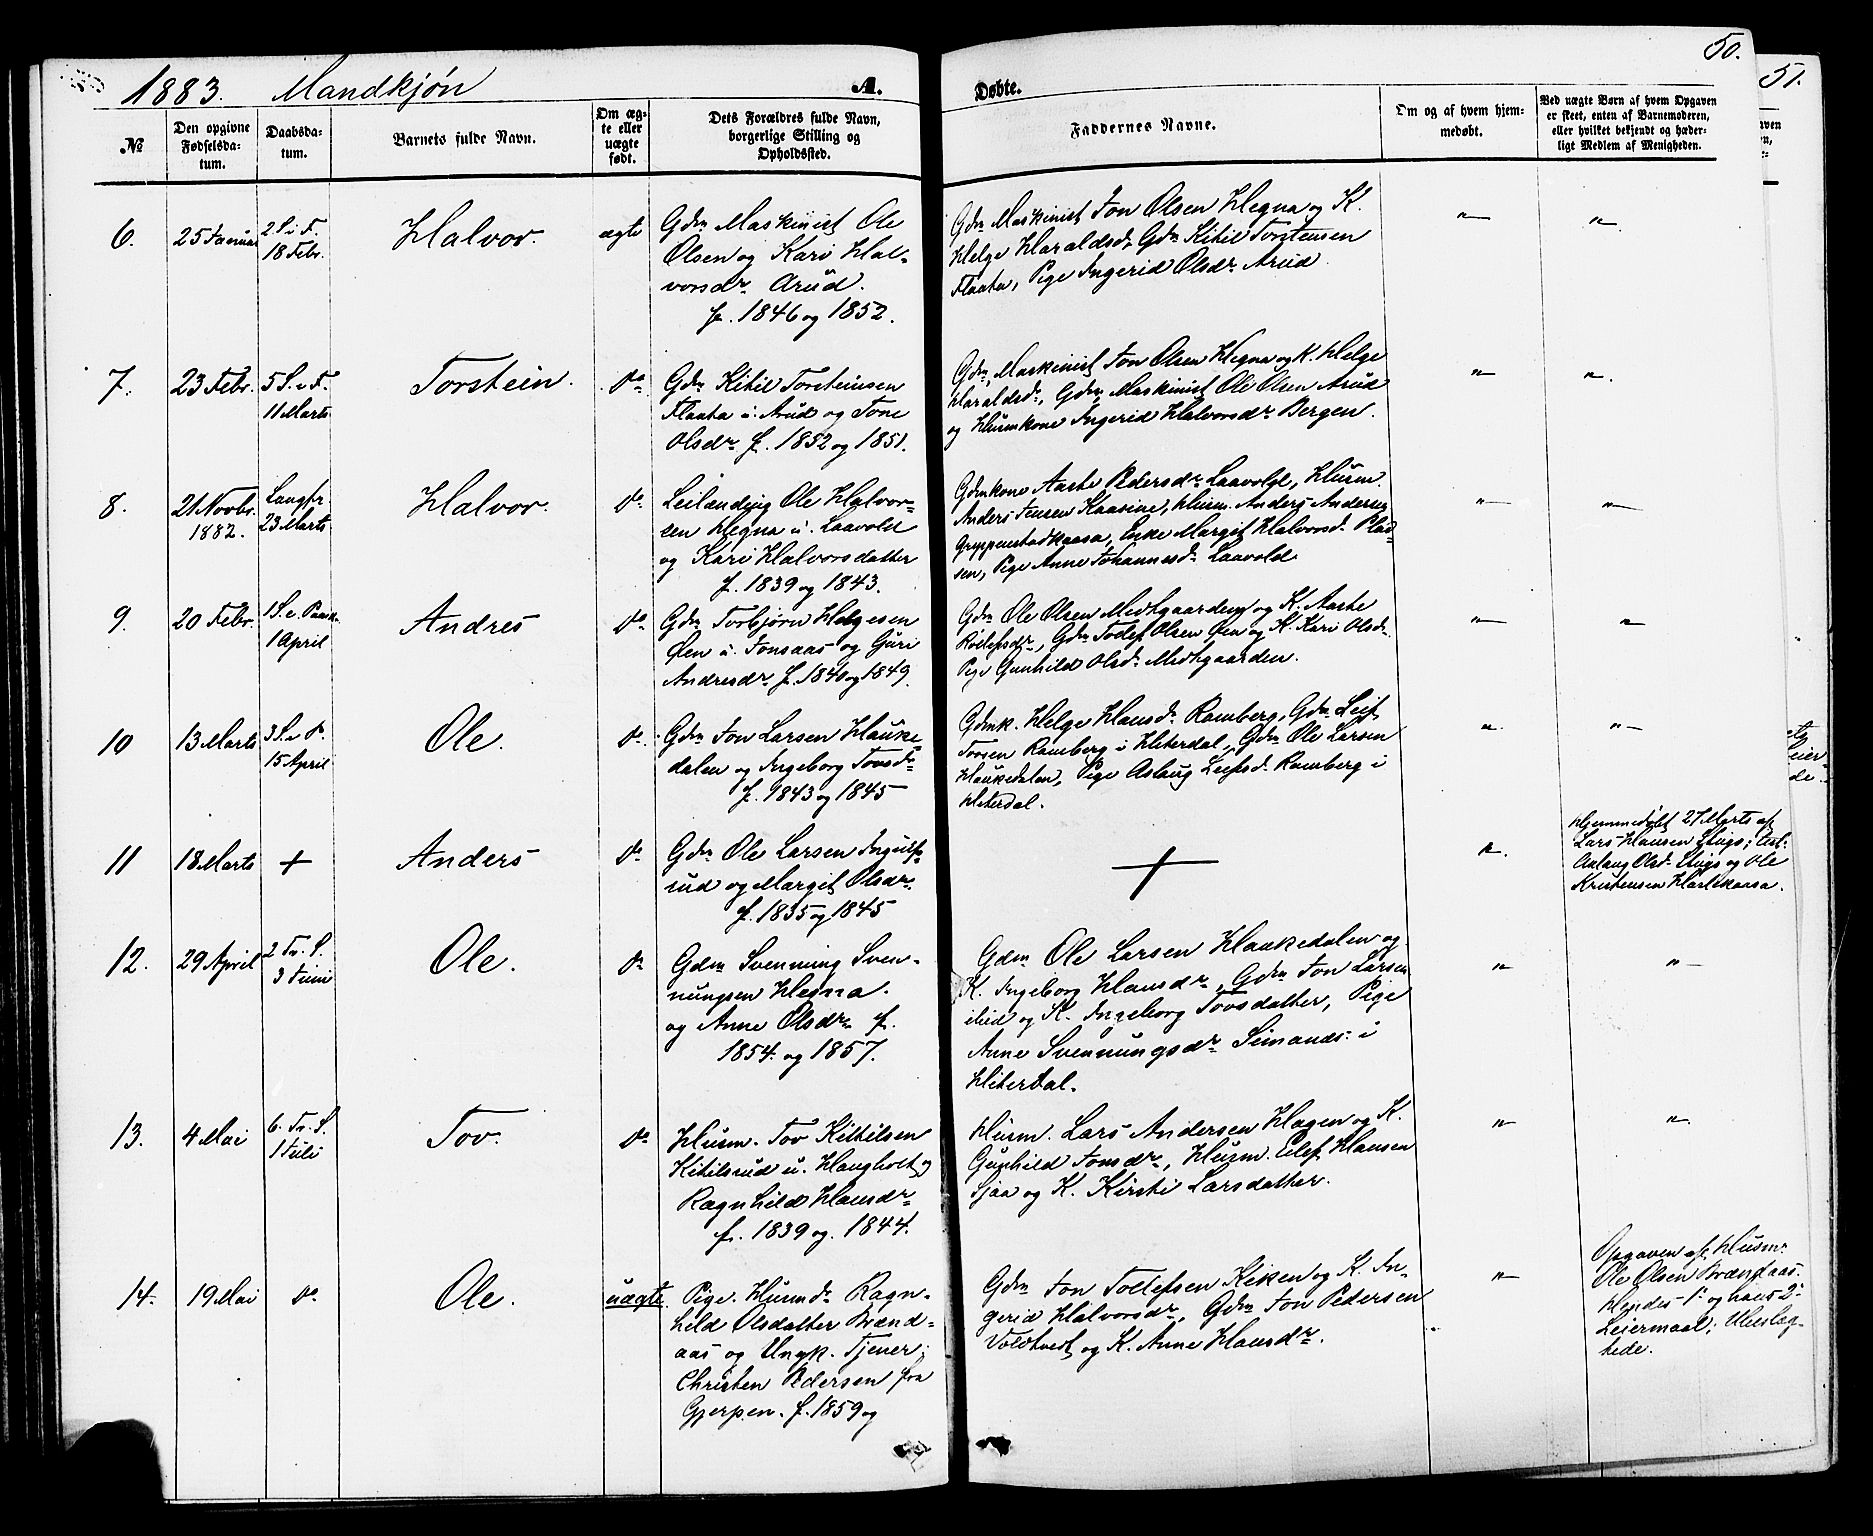 1883. Mandkjøn A. Døbte. 50.
51.
№
Den opgivne Fødselsdatum.
Daabsdatum.
Barnets fulde Navn.
Om ægte eller uægte født.
Dets Forældres fulde Navn, borgerlige Stilling og Opholdssted.
Faddernes Navne.
Om og af hvem hjemmedøbt.
Ved uægte Børn af hvem Opgaven er skeet, enten af Barnemoderen, eller hvilket bekjendt og hæderligt Medlem af Menigheden.
6. 25 Januar 2 S. i F. 18 Febr. Halvor. ægte
Gdm Maskinist Ole
Olsen og Kari Hal-
vorsdr Arud.
f. 1846 og 1852.
Gdm Maskinist Jon Olsen Hegna og K.
Helge Haraldsd, Gdm Kitil Torstensen
Flaata, Pige Ingerid Olsdr Arud
" "
7. 23 Febr. 5 S. i F. 11 Marts Torstein. do
Gdm Kitil Torsteinsen
Flaata u. Arud og Tone
Olsdr f. 1852 og 1851.
Gdm, Maskinist Jon Olsen Hegna og K. Helge
Haraldsdr, Gdm, Maskinist Ole Olsen Arud
og Husmkone Ingerid Halvorsdr Bergen.
" "
8. 21 Novbr. 1882. Langfr. 23 Marts Halvor. do
Leilænding Ole Halvor-
sen Hegna u. Laavold
og Kari Halvorsdatter
f. 1839 og 1843.
Gdmkone Aaste Pedersdr Laavolde, Husm.
Anders Jensen Kaasine, Husm. Anders Andersen
Gryppenstadkaasa, Enke Margit Halvorsd. Plad-
sen, Pige Anne Johannesdr Laavolde
" "
9. 20 Febr. 1 S. e. Paask. 1 April Andres do
Gdm Torbjørn Helgesen
Øen u. Jonsaas og Guri
Andresdr f. 1840 og 1849.
Gdm Ole Olsen Midtgaarden og K. Aaste
Rollefsdr, Gdm Tollef Olsen Øen og K. Kari Olsdr
Pige Gunhild Olsdr Midtgaarden.
" "
10 13 Marts 3 S. e. P. 15 April Ole. do
Gdm Jon Larsen Hauke-
dalen og Ingeborg Tovsdr
f. 1843 og 1845
Gdmk. Helge Hansdr Ramberg, Gdm Leif
Tovsen Ramberg i Hiterdal, Gdm Ole Larsen
Haukedalen, Pige Aslaug Leifsd. Ramberg i
Hiterdal.
" "
11 18 Marts + Anders do
Gdm Ole Larsen Ingulfs-
rud og Margit Olsdr
f. 1835 og 1845
+
"
Hjemmedøbt 27 Marts af
Lars Hansen Stugs; Test.
Aslaug Olsd. Stugs og Ole
Kristensen Haslekaasa.
12. 29 April 2 Tr. S. 3 Juni Ole. do
Gdm Svenning Sven-
nungsen Hegna.
og Anne Olsdr f.
1854. og 1857.
Gdm Ole Larsen Haukedalen og
K. Ingeborg Hansdr, Gdm Jon Larsen
ibid og K. Ingeborg Tovsdatter, Pige
Anne Svennungsdr Simones i
Hiterdal.
" "
13. 4 Mai 6. Tr. S. 1 Juli Tov. do
Husm. Tov Kittilsen
Kitilsrud u. Haugholt og
Ragnhild Hansdr
f. 1839 og 1844.
Husm. Lars Andersen Hagen og K.
Gunhild Jonsdr, Husm. Elef Hansen
Sjaa og K. Kirsti Larsdatter.
" "
14. 19 Mai do Ole. uægte.
Pige. Husmdr Ragn-
hild Olsdatter Brænd-
aas og Ungk. Tjener
Christen Pedersen fra
Gjerpen. f. 1859 og
Gdm Jon Tollefsen Kiken og K. In-
gerid Halvorsdr, Gdm Jon Pedersen
Voldtvedt og K. Anne Hansdr.
"
Opgaven af Husm.
Ole Olsen Brændaas.
Hendes 1ste og hans 2det
Leiermaal; Ubeslæg-
tede.